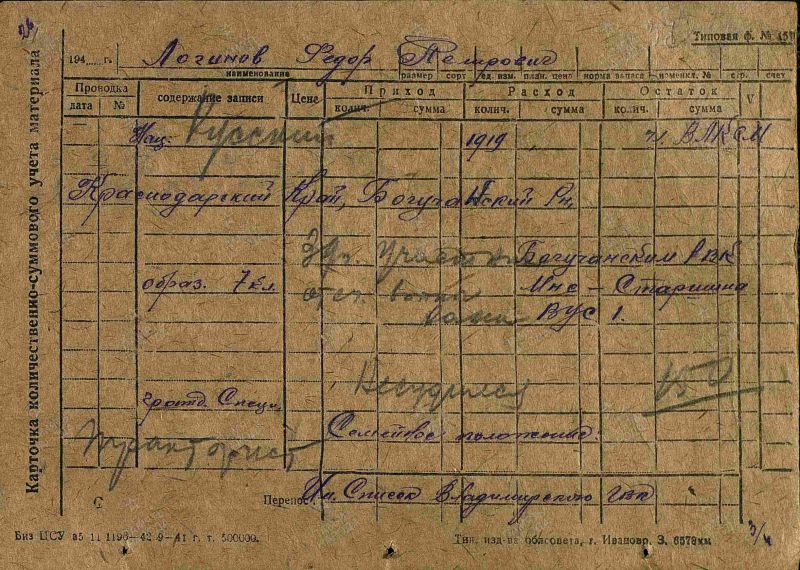 26
Типовая ф. №
Карточка количественно-суммового учета материала
194 г. Логинов Федор Петрович
наименование размер сорт ед. изм. план. цена норма запаса номенкл. № стр. счет
Проводка содержание записи Цена Приход Расход Остаток V
дата № колич. сумма колич. сумма колич. сумма
Нац: Русский 1919 чл. ВЛКСМ
Краснодарский Край, Богучанский Рн,
Богучанским Рвк
образ. 7 кл. Мнс – Старшина
ВУС 1.
Несудился
гражд. Спец.
Семейное положение:
тракторист
Перенос Им. Список Владимирского гвк
3/4
Биз ЦСУ 1196—42 9—41 г. т. 500000. Тип. изд-ва облсовета, г. Иваново, З. 6578км